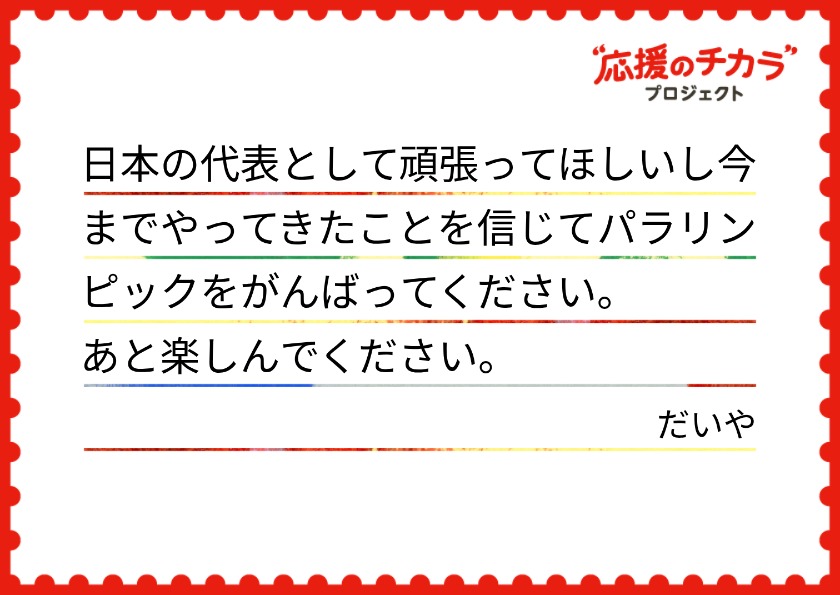 “応援のチカラ”
プロジェクト
日本の代表として頑張ってほしいし今
までやってきたことを信じてパラリン
ピックをがんばってください。
あと楽しんでください。
だいや